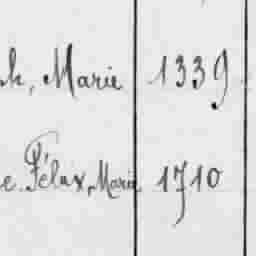 h, Marie 1339
e. Félix, Marie 1710